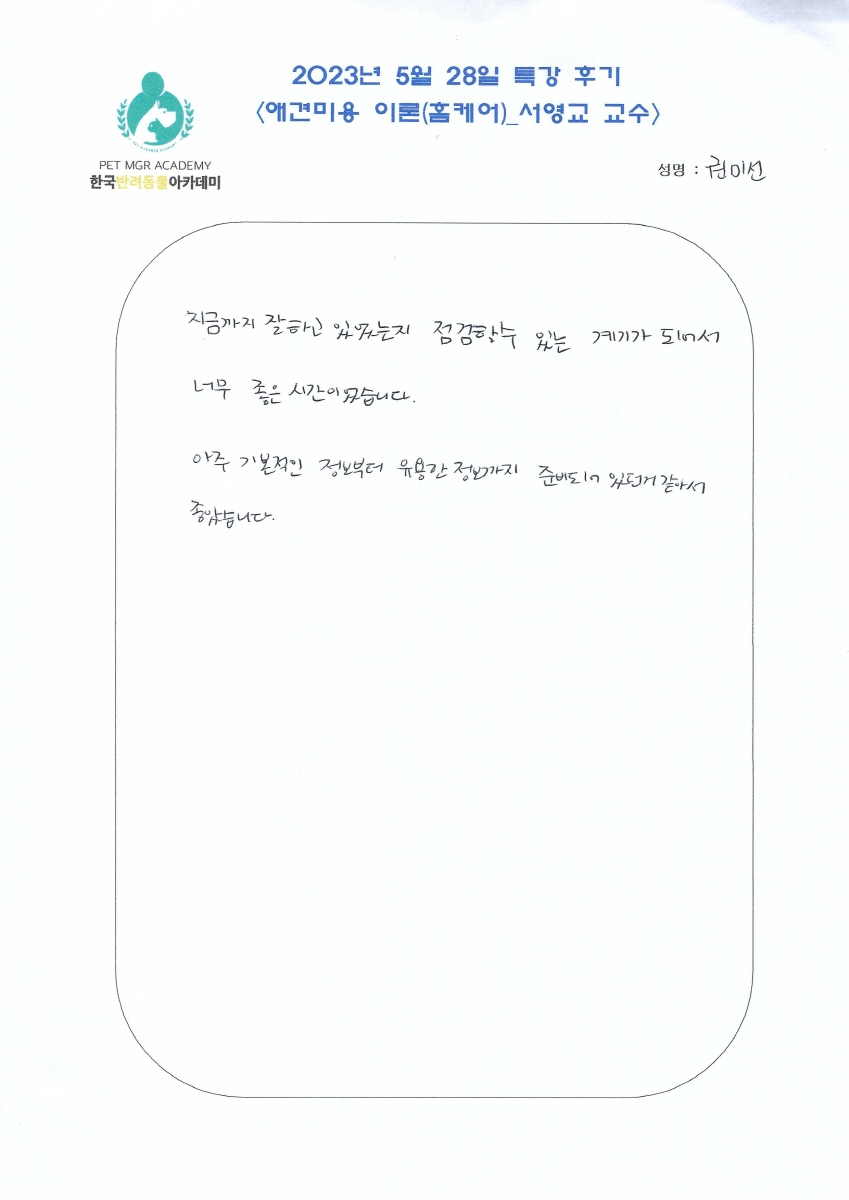 2023년 5월 28일 특강 후기
<애견미용 이론(홈케어)_서영교 교수>
PET MGR ACADEMY
한국반려동물아카데미
성명 : 권미선
지금까지 잘하고 있었는지 점검할수 있는 계기가 되어서
너무 좋은 시간이였습니다.
아주 기본적인 정보부터 유용한 정보까지 준비되어 있던거 같아서
좋았습니다.